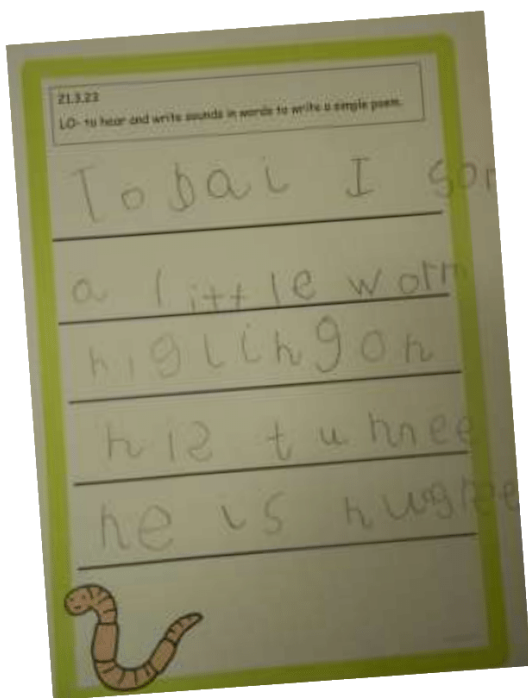 21.3.23
LO- to hear and write sounds in words to write a simple poem.
Todai I sor
a little worm
higlingon
his tunnee
he is hugree